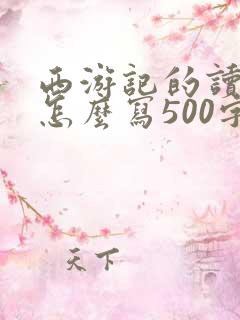 西游記的讀
怎麼寫500字
天下